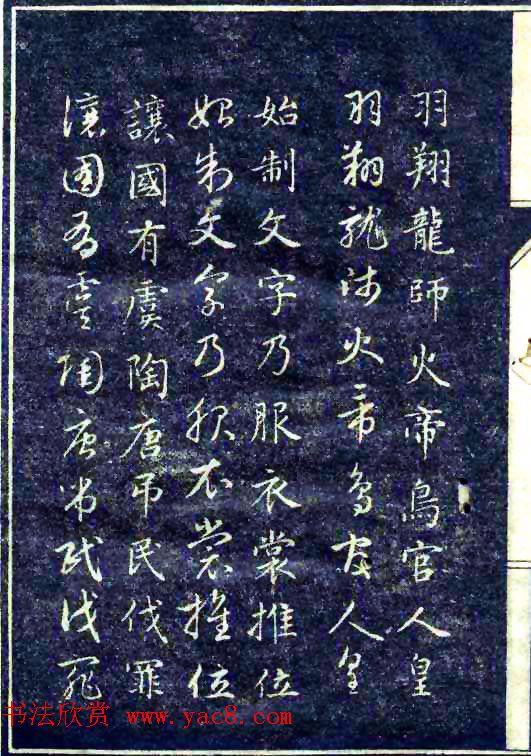 羽翔龍師火帝鳥官人皇
羽翔龍師火帝鳥官人皇
始制文字乃服衣裳推位
始制文字乃服衣裳推位
讓國有虞陶唐吊民伐罪
讓國有虞陶唐吊民伐罪
书法欣赏 www.yac8.com